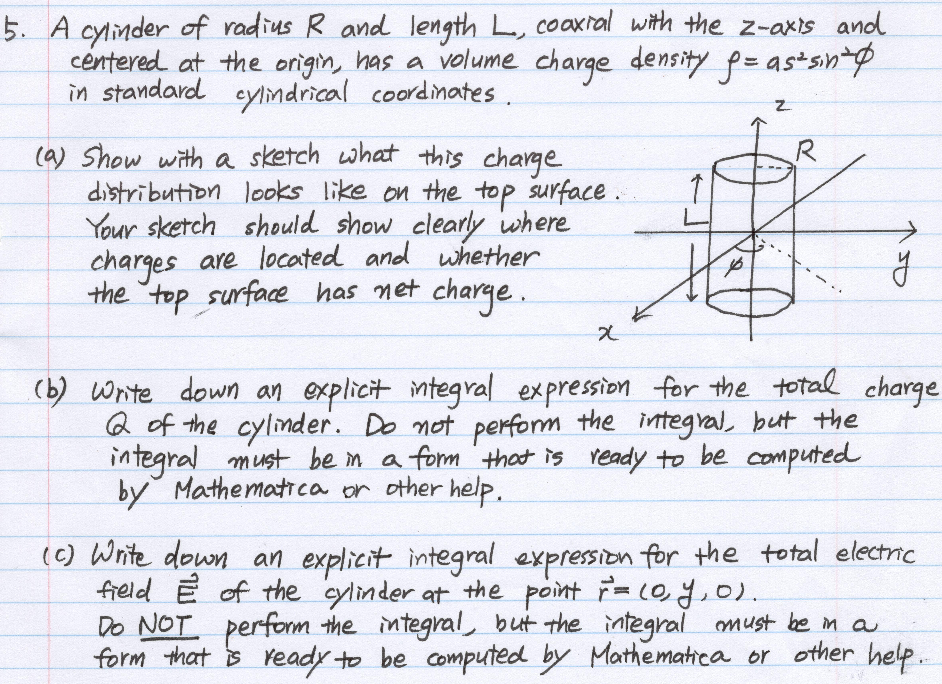 5. A cylinder of radius R and length L, coaxial with the z-axis and
centered at the origin, has a volume charge density ρ = as²sin²φ
in standard cylindrical coordinates.
z
(a) Show with a sketch what this charge
R
distribution looks like on the top surface.
Your sketch should show clearly where
L
charges are located and whether
y
φ
the top surface has net charge.
x
(b) Write down an explicit integral expression for the total charge
Q of the cylinder. Do not perform the integral, but the
integral must be in a form that is ready to be computed
by Mathematica or other help.
(c) Write down an explicit integral expression for the total electric
field E⃗ of the cylinder at the point r⃗ = (0, y, 0).
Do NOT perform the integral, but the integral must be in a
form that is ready to be computed by Mathematica or other help.